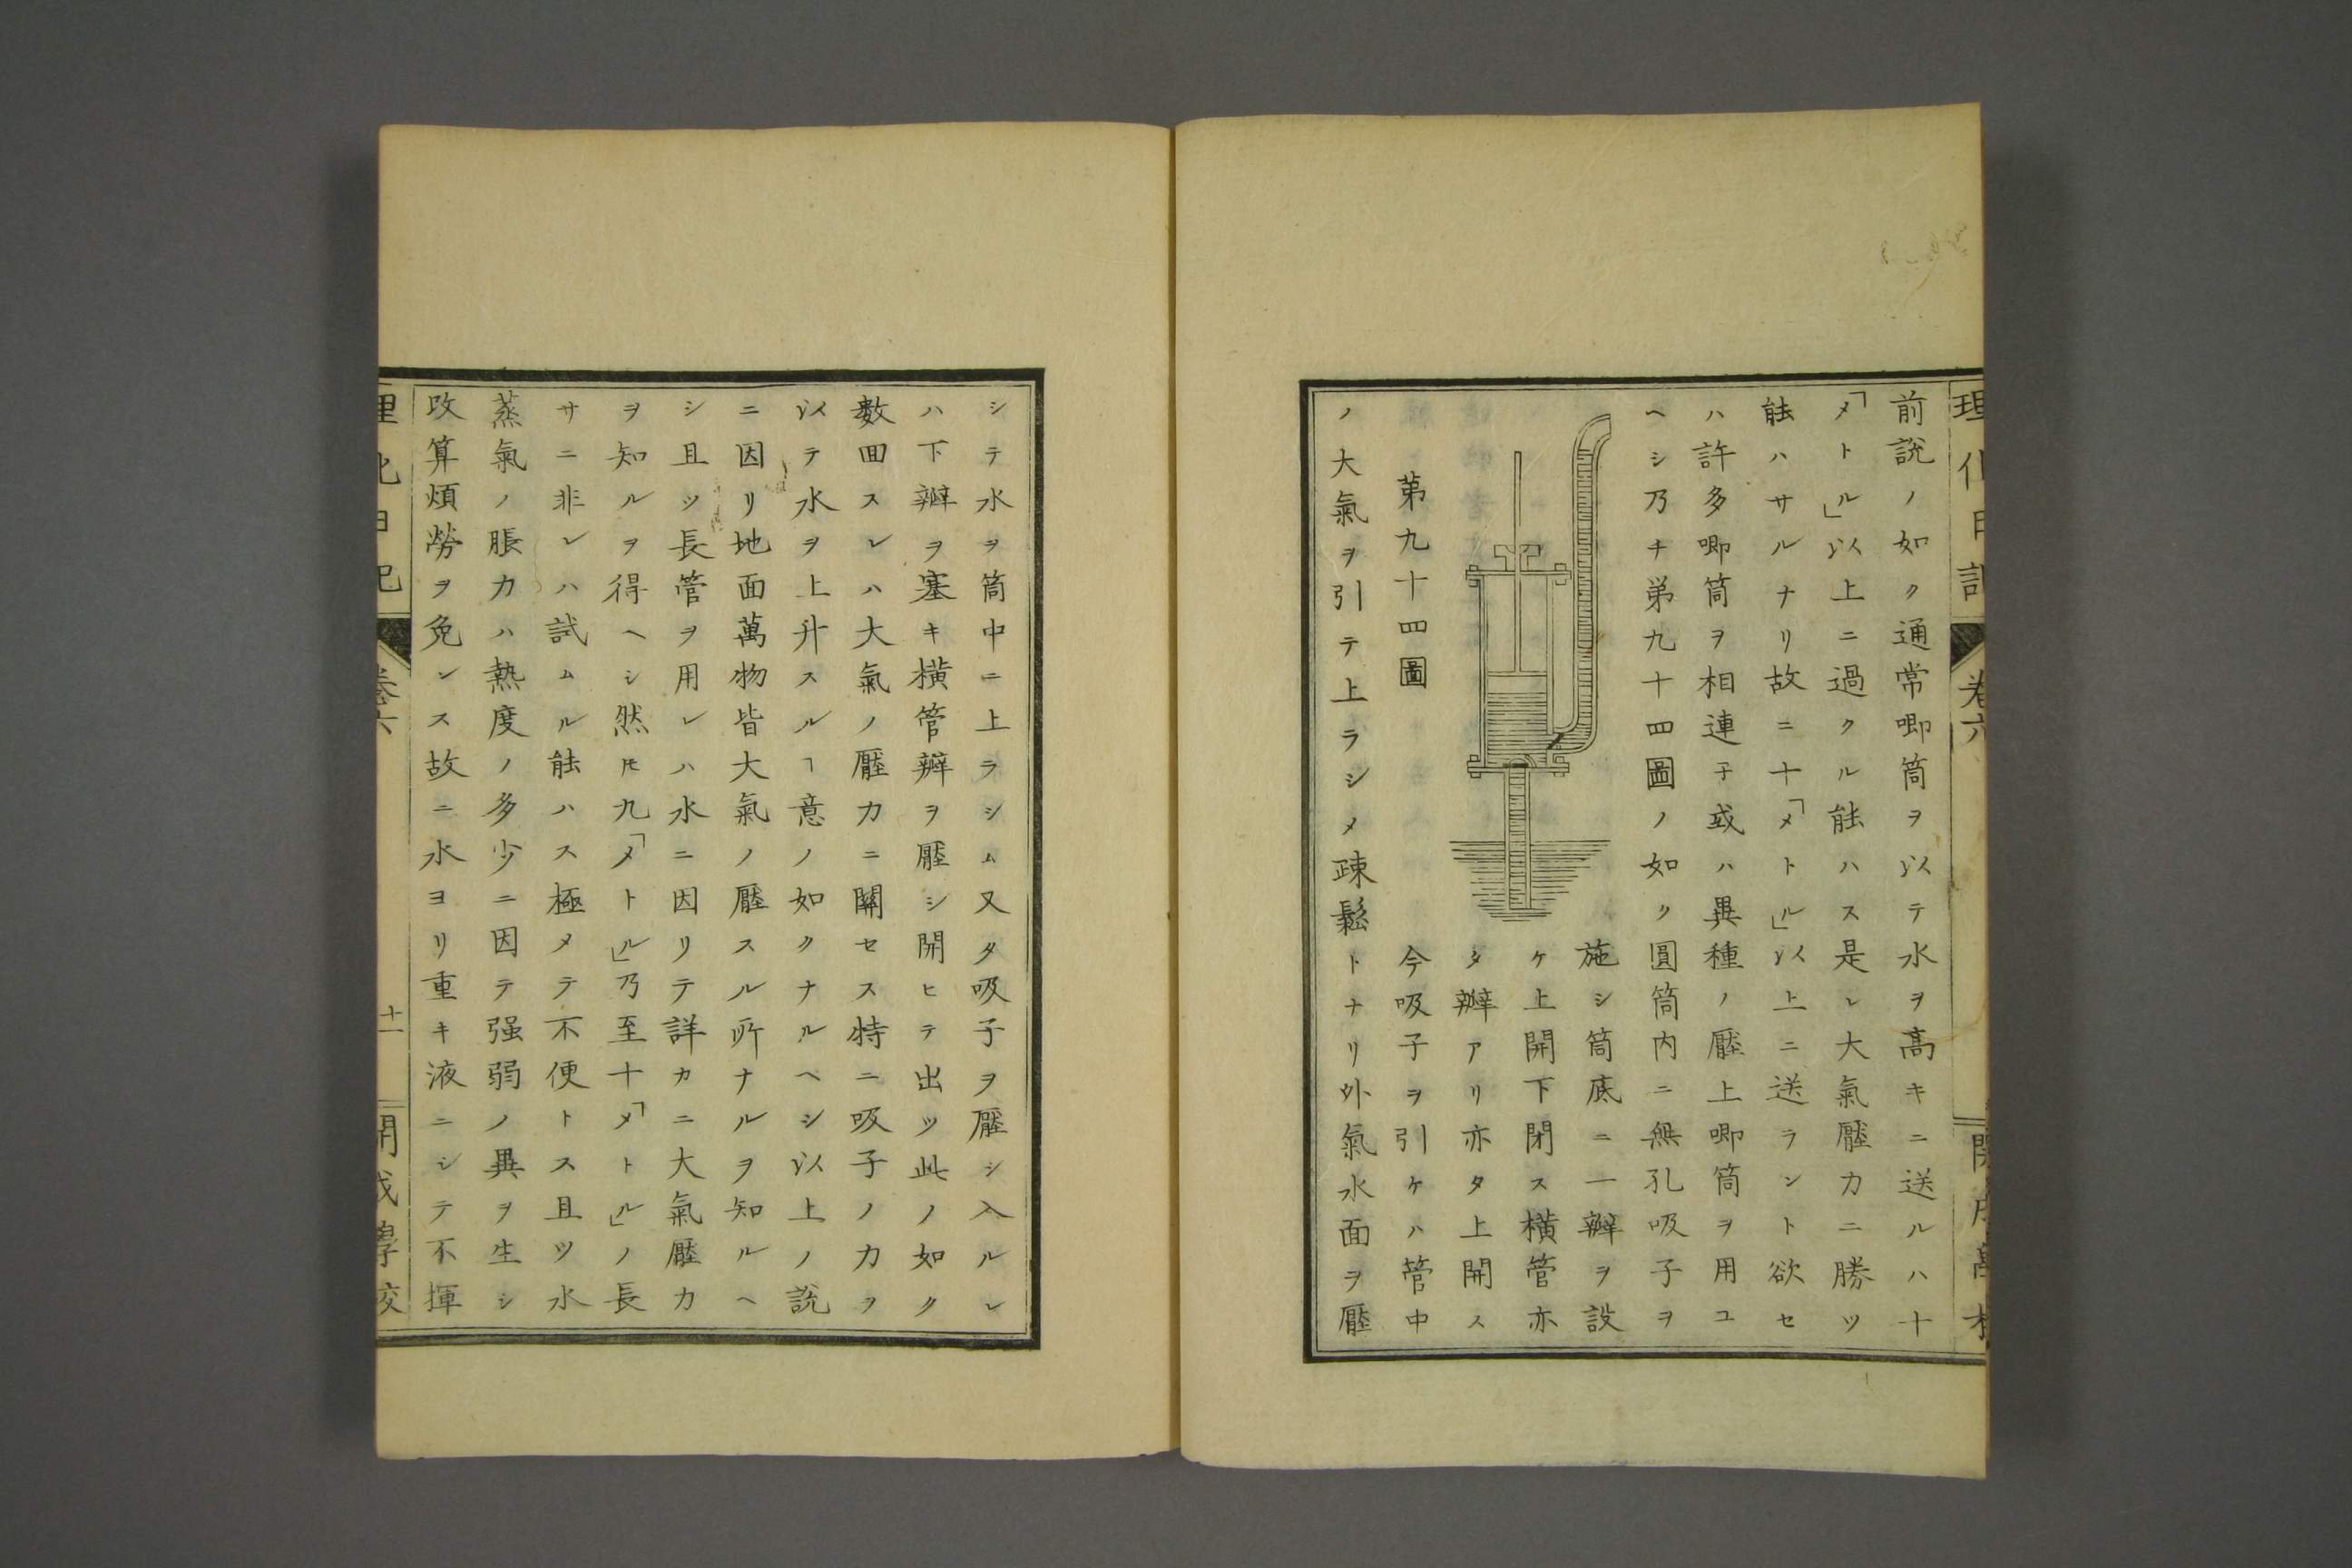 前説ノ如ク通常喞筒ヲ以テ水ヲ高キニ送ルハ十
「メトル」以上ニ過クル能ハス是レ大氣壓力ニ勝ツ
能ハサルナリ故ニ十「メトル」以上ニ送ラント欲セ
ハ許多喞筒ヲ相連子或ハ異種ノ壓上喞筒ヲ用ユ
ヘシ乃チ第九十四圖ノ如ク圓筒内ニ無孔吸子ヲ
施シ筒底ニ一辧ヲ設
ケ上開下閉ス横管亦
タ辧アリ亦タ上開ス
第九十四圖
今吸子ヲ引ケハ管中
ノ大氣ヲ引テ上ラシメ疎鬆トナリ外氣水面ヲ壓
シテ水ヲ筒中ニ上ラシム又タ吸子ヲ壓シ入ルレ
ハ下辧ヲ塞キ横管辧ヲ壓シ開ヒテ出ツ此ノ如ク
數回スレハ大氣ノ壓力ニ關セス特ニ吸子ノ力ヲ
以テ水ヲ上升スルヿ意ノ如クナルヘシ以上ノ説
ニ因リ地面萬物皆大氣ノ壓スル所ナルヲ知ルヘ
シ且ツ長管ヲ用レハ水ニ因リテ詳カニ大氣壓力
ヲ知ルヲ得ヘシ然𪜈九「メトル」乃至十「メトル」ノ長
サニ非レハ試ムル能ハス極メテ不便トス且ツ水
蒸氣ノ脹力ハ熱度ノ多少ニ因テ强弱ノ異ヲ生シ
改算煩勞ヲ免レス故ニ水ヨリ重キ液ニシテ不揮
理化日記
卷六
十一
開成學校